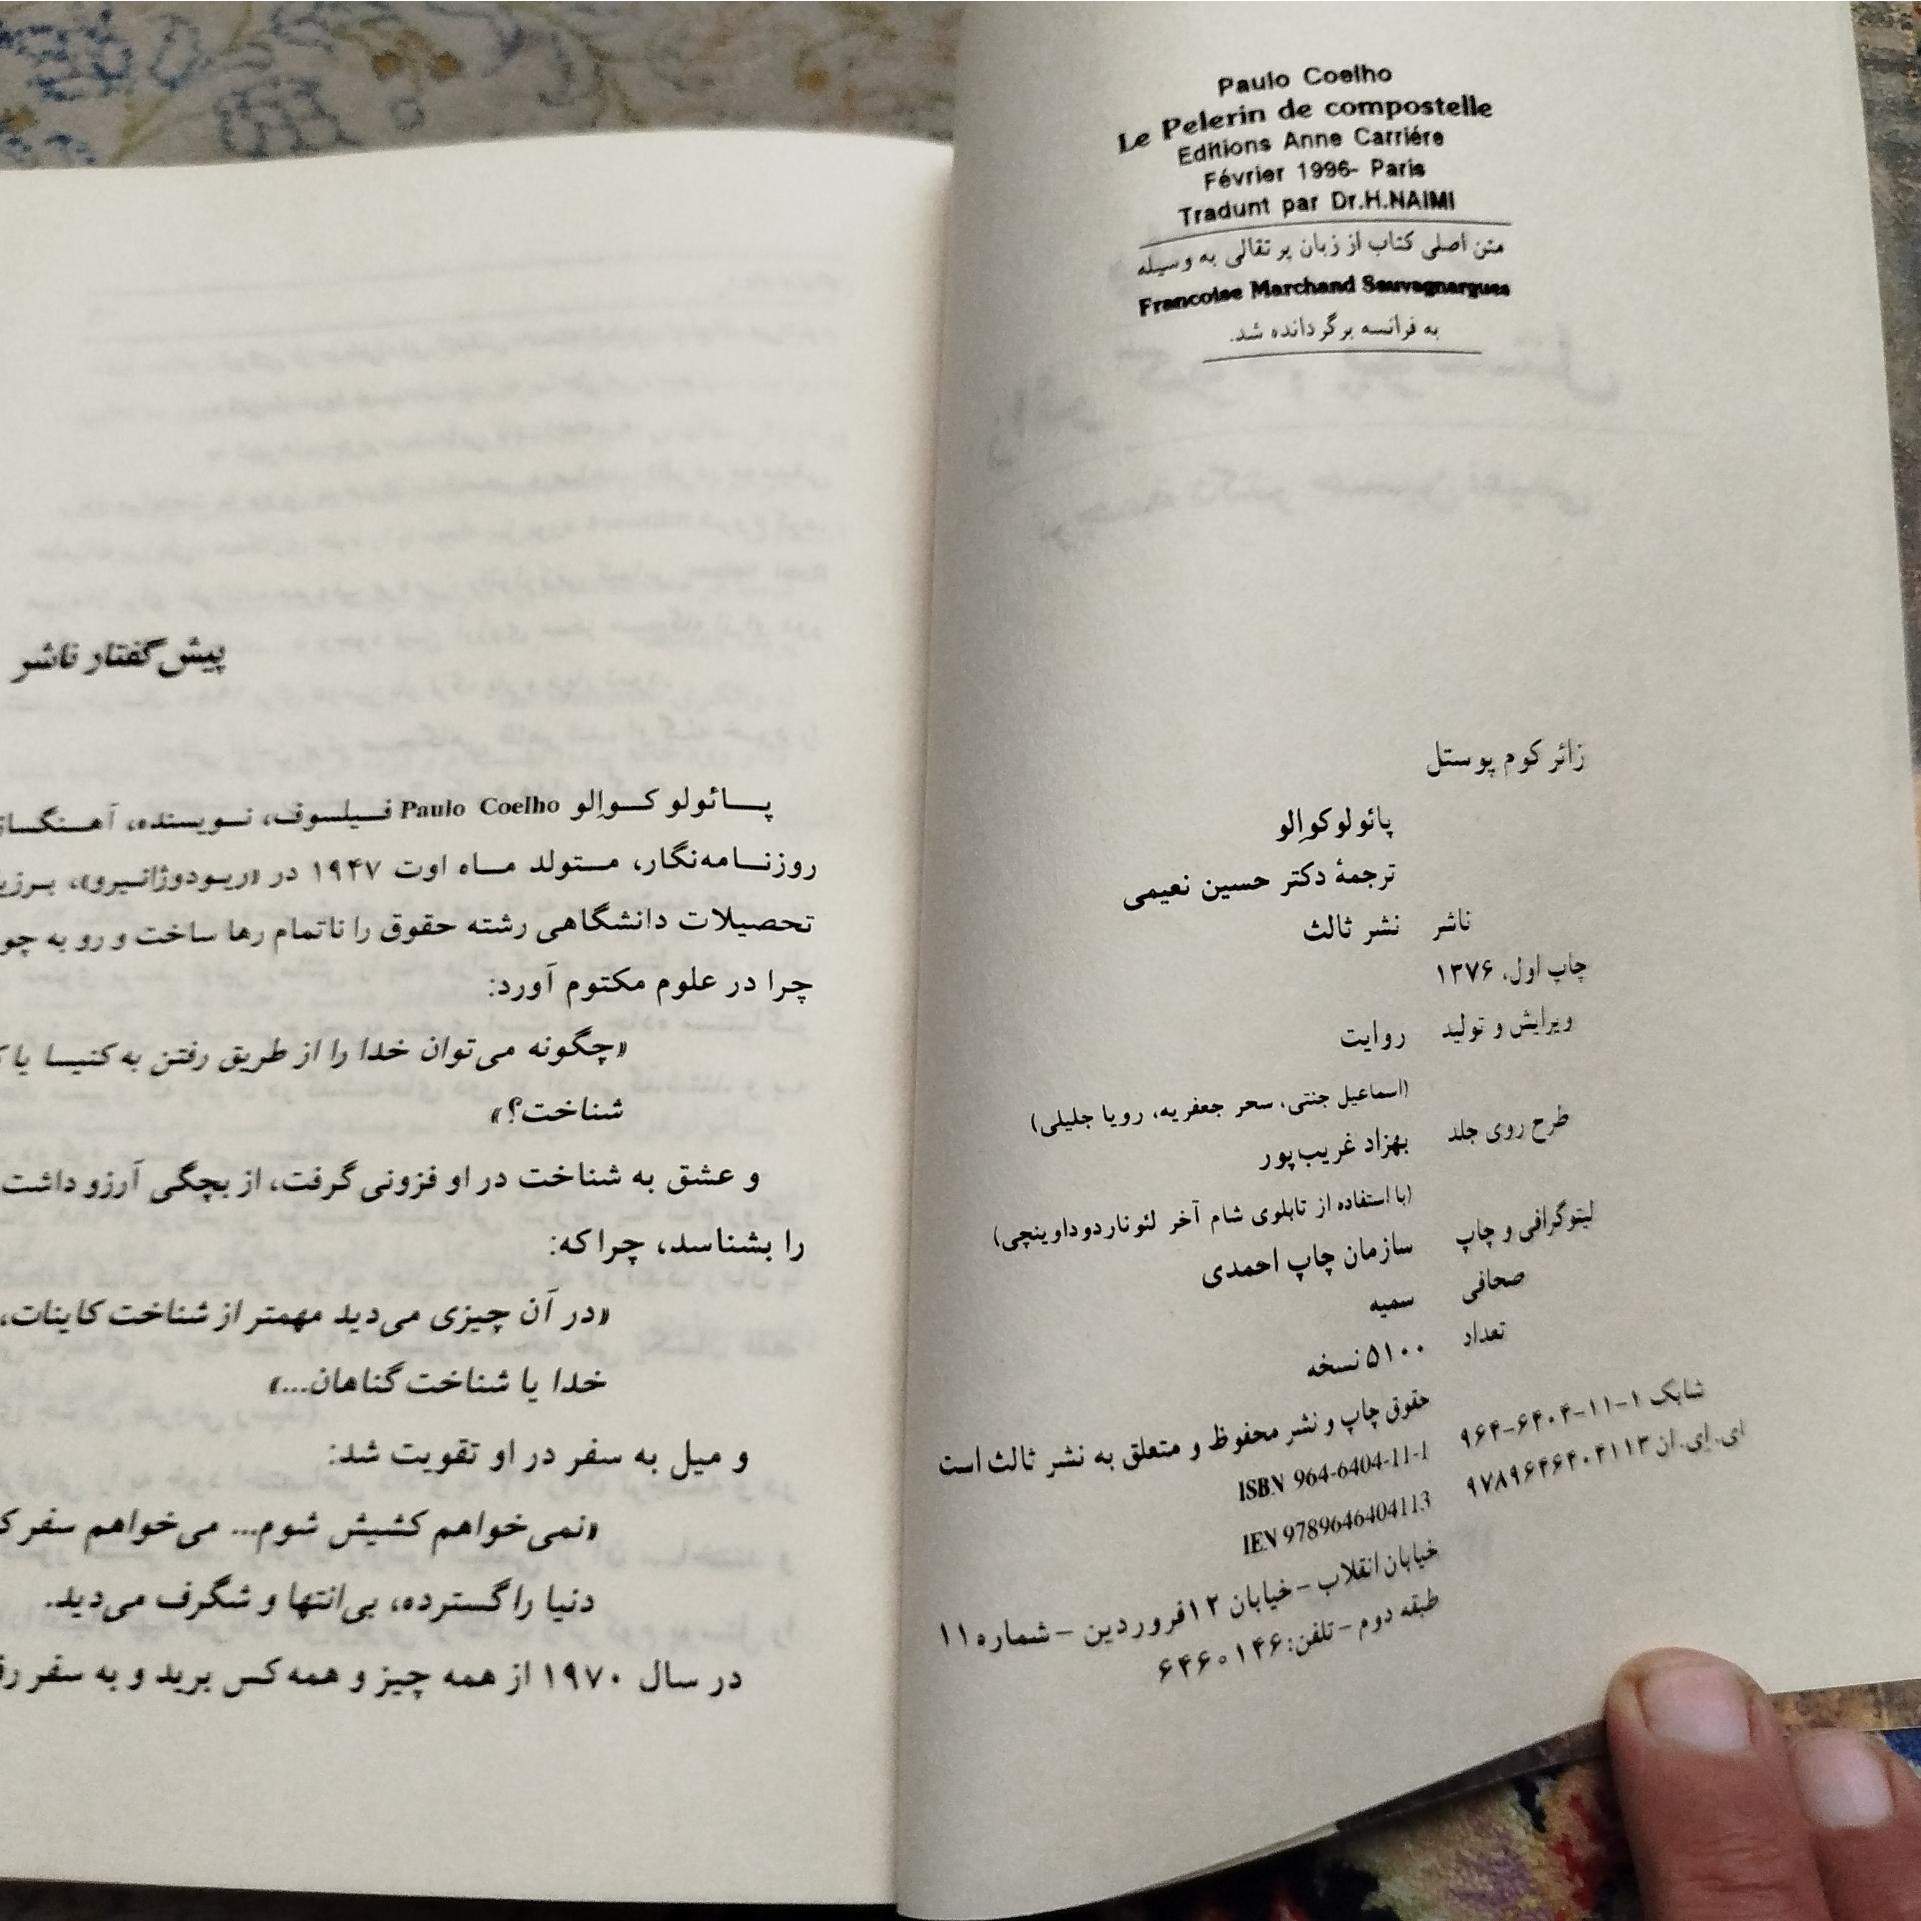 Paulo Coelho
Le Pelerin de compostelle
Editions Anne Carriére
Février 1996- Paris
Tradunt par Dr.H.NAIMI
متن اصلی کتاب از زبان پرتقالی به وسیله
Francoise Marchand Sauvagnargues
به فرانسه برگردانده شد.
زائر کوم پوستل
پائولوکواِلو
ترجمهٔ دکتر حسین نعیمی
ناشر نشر ثالث
چاپ اول، ۱۳۷۶
ویرایش و تولید روایت
(اسماعیل جنتی، سحر جعفریه، رویا جلیلی)
طرح روی جلد بهزاد غریب‌پور
(با استفاده از تابلوی شام آخر لئوناردوداوینچی)
لیتوگرافی و چاپ سازمان چاپ احمدی
صحافی سمیه
تعداد ۵۱۰۰ نسخه
حقوق چاپ و نشر محفوظ و متعلق به نشر ثالث است
شابک ۱-۱۱-۶۴۰۴-۹۶۴ ISBN 964-6404-11-1
ای.ای.ان ۹۷۸۹۶۴۶۴۰۴۱۱۳ IEN 9789646404113
خیابان انقلاب – خیابان ۱۲ فروردین – شماره ۱۱
طبقه دوم – تلفن: ۶۴۶۰۱۴۶
پیش‌گفتار ناشر
پائولو کواِلو Paulo Coelho فیلسوف، نویسنده، آهنگساز
روزنامه‌نگار، متولد ماه اوت ۱۹۴۷ در «ریودوژانیرو»،
تحصیلات دانشگاهی رشته حقوق را ناتمام رها ساخت و رو به
چرا در علوم مکتوم آورد:
«چگونه می‌توان خدا را از طریق رفتن به کنیسا یا
شناخت؟»
و عشق به شناخت در او فزونی گرفت، از بچگی آرزو داشت
را بشناسد، چراکه:
«در آن چیزی می‌دید مهمتر از شناخت کاینات،
خدا یا شناخت گناهان...»
و میل به سفر در او تقویت شد:
«نمی‌خواهم کشیش شوم... می‌خواهم سفر
دنیا را گسترده، بی‌انتها و شگرف می‌دید.
در سال ۱۹۷۰ از همه چیز و همه کس برید و به سفر